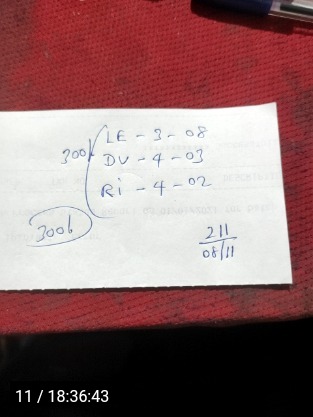 LE - 3 - 08
300/
DU - 4 - 03
Ri - 4 - 02
300b
211
08/11
11 / 18:36:43